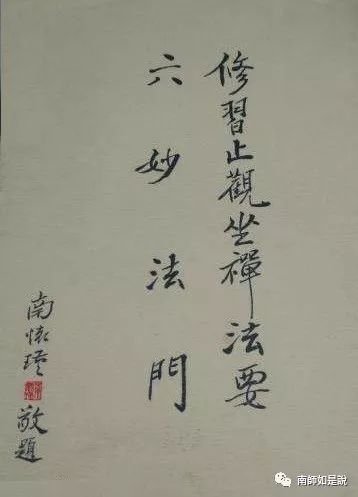 修習止觀坐禪法要
六妙法門
南懷瑾
敬題
南師如是說